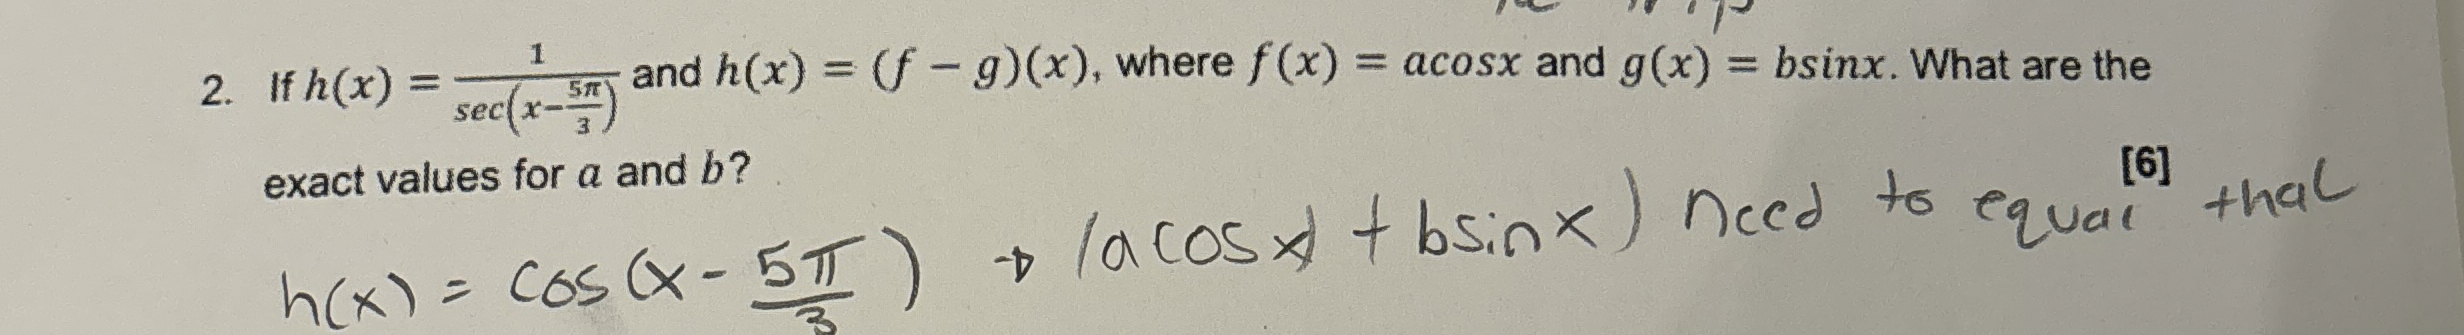 2. If h(x) = 1/sec(x−5π/3) and h(x) = (f − g)(x), where f(x) = acosx and g(x) = bsinx. What are the
exact values for a and b?
[6]
h(x) = cos(x - 5π/3) → (acosx + bsinx) need to equal that